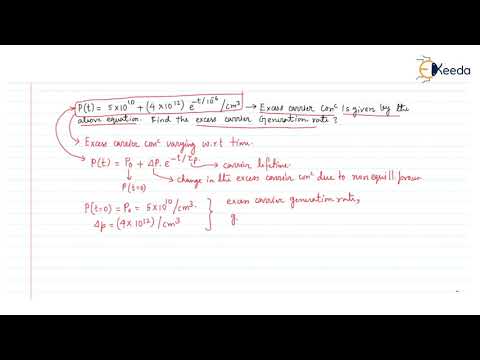 Ekeeda
P(t) = 5×10¹⁰ + (4×10¹²) e^(-t/10⁻⁶) /cm³ → Excess carrier conᶜ is given by the
above equation. Find the excess carrier Generation rate?
Excess carrier conᶜ varying w.r.t time.
P(t) = P₀ + ΔP. e^(-t/τp) → carrier lifetime
P(t=0)
change in the excess carrier conᶜ due to non equill
P(t=0) = P₀ = 5×10¹⁰/cm³.
Δp = (4×10¹²)/cm³
excess carrier generation rate,
g.